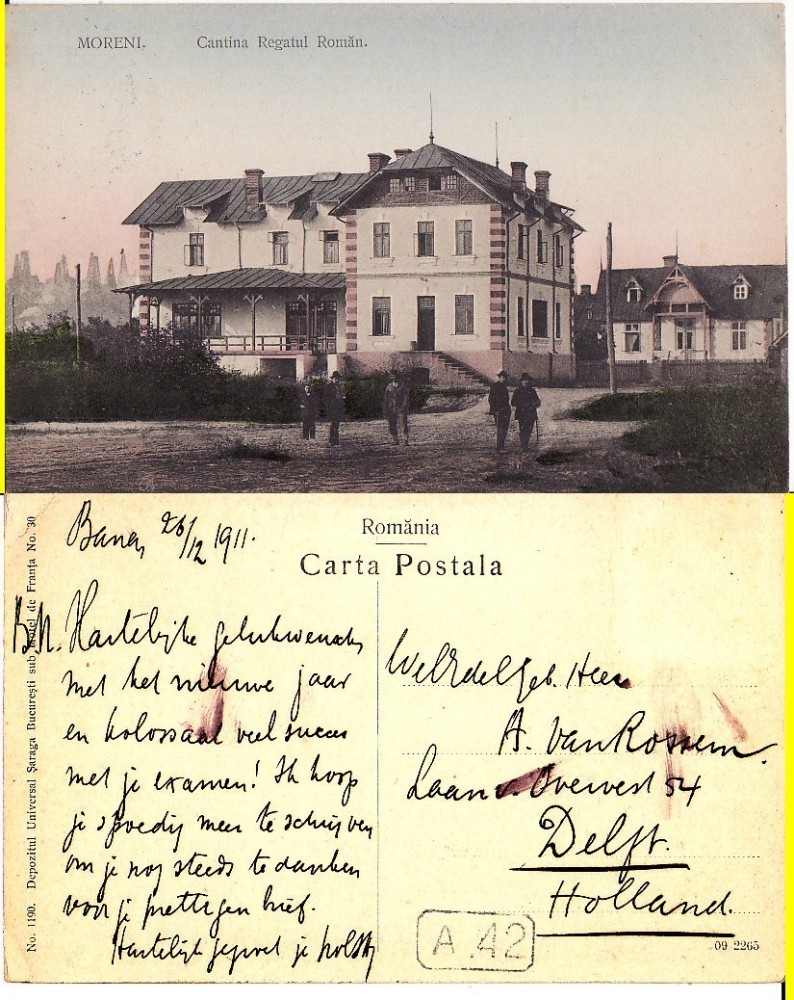 MORENI. Cantina Regatul Român.
26/12 1911.
România
Carta Postala
Hartelijke gelukwenschen
met het nieuwe jaar
en kolossaal veel succes
met je examen! Ik hoop
je spoedig meer te schrijven
om je nog steeds te danken
voor je prettigen brief.
Hartelijk gegroet je
WelEdelGeb. Heer
A. van Rossem.
Laan v. Overvest 54
Delft.
Holland.
A.42
09 2265
No. 1190. Depozitul Universal Șaraga București sub Hotel de Franța No. 30